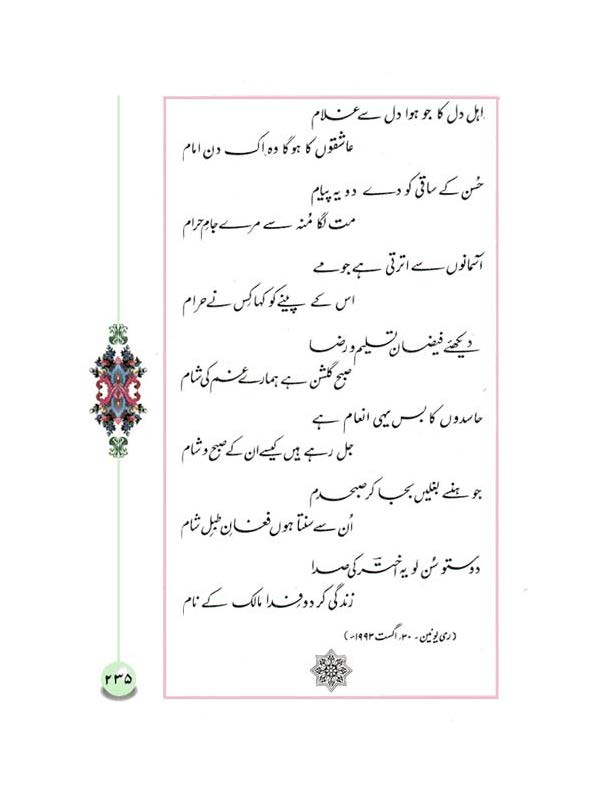 اہل دل کا جو ہوا دل سے غلام
عاشقوں کا ہوگا وہ اِک دن امام
حُسن کے ساقی کو دے دو یہ پیام
مت لگا مُنہ سے مرے جامِ حرام
آسمانوں سے اترتی ہے جو مے
اس کے پینے کو کہا کِس نے حرام
دیکھئے فیضانِ تسلیم و رضا
صبح گلشن ہے ہمارے غم کی شام
حاسدوں کا بس یہی انعام ہے
جل رہے ہیں کیسے ان کے صبح و شام
جو ہنسے بغلیں بجا کر صبحدم
اُن سے سنتا ہوں فغانِ طبلِ شام
دوستو سُن لو یہ اخترؔ کی صدا
زندگی کر دو فِدا مالک کے نام
(ری یونین۔ ۳۰؍ اگست ۱۹۹۳ء)
۲۳۵